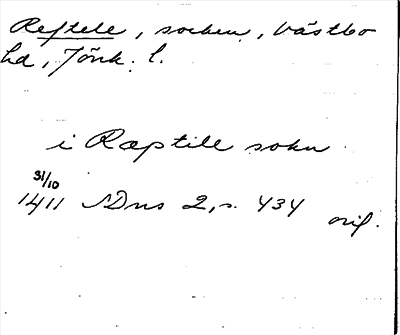 Reftele, socken, Västbo
hd, Jönk. l.
i Ræptille sokn
31/10
1411 SDns 2, s. 434
orig.